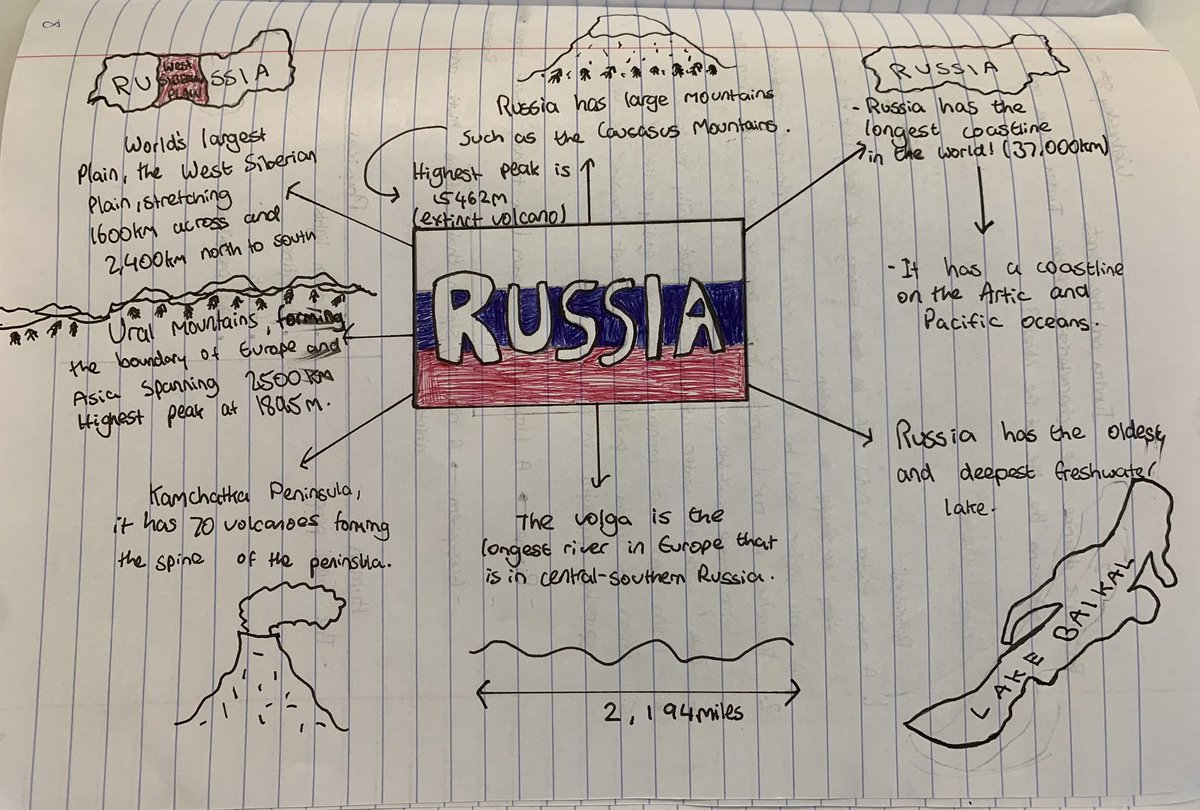 8
RU West Siberian Plain SSIA
World's largest
Plain, the West Siberian
Plain, stretching
1600km across and
2,400km north to south
Russia has large mountains
such as the Caucasus Mountains.
Highest peak is
5462m
(extinct volcano)
RUSSIA
- Russia has the
longest coastline
in the world! (37,000km)
- It has a coastline
on the Artic and
Pacific oceans.
RUSSIA
Ural Mountains, forming
the boundary of Europe and
Asia spanning 2500km
Highest peak at 1895m.
Kamchatka Peninsula,
it has 70 volcanoes forming
the spine of the peninsula.
The volga is the
longest river in Europe that
is in central-southern Russia.
2,194miles
Russia has the oldest
and deepest freshwater
lake.
LAKE BAIKAL